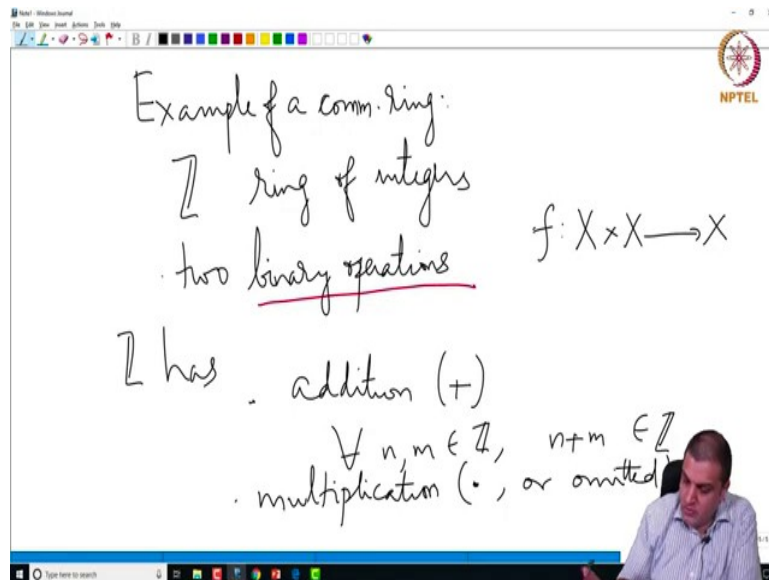 Note1 - Windows Journal
File Edit View Insert Actions Tools Help
NPTEL
Example of a comm. ring:
ℤ ring of integers
· two binary operations
f: X × X → X
ℤ has . addition (+)
∀ n, m ∈ ℤ, n+m ∈ ℤ
· multiplication (·, or omitted)
Type here to search